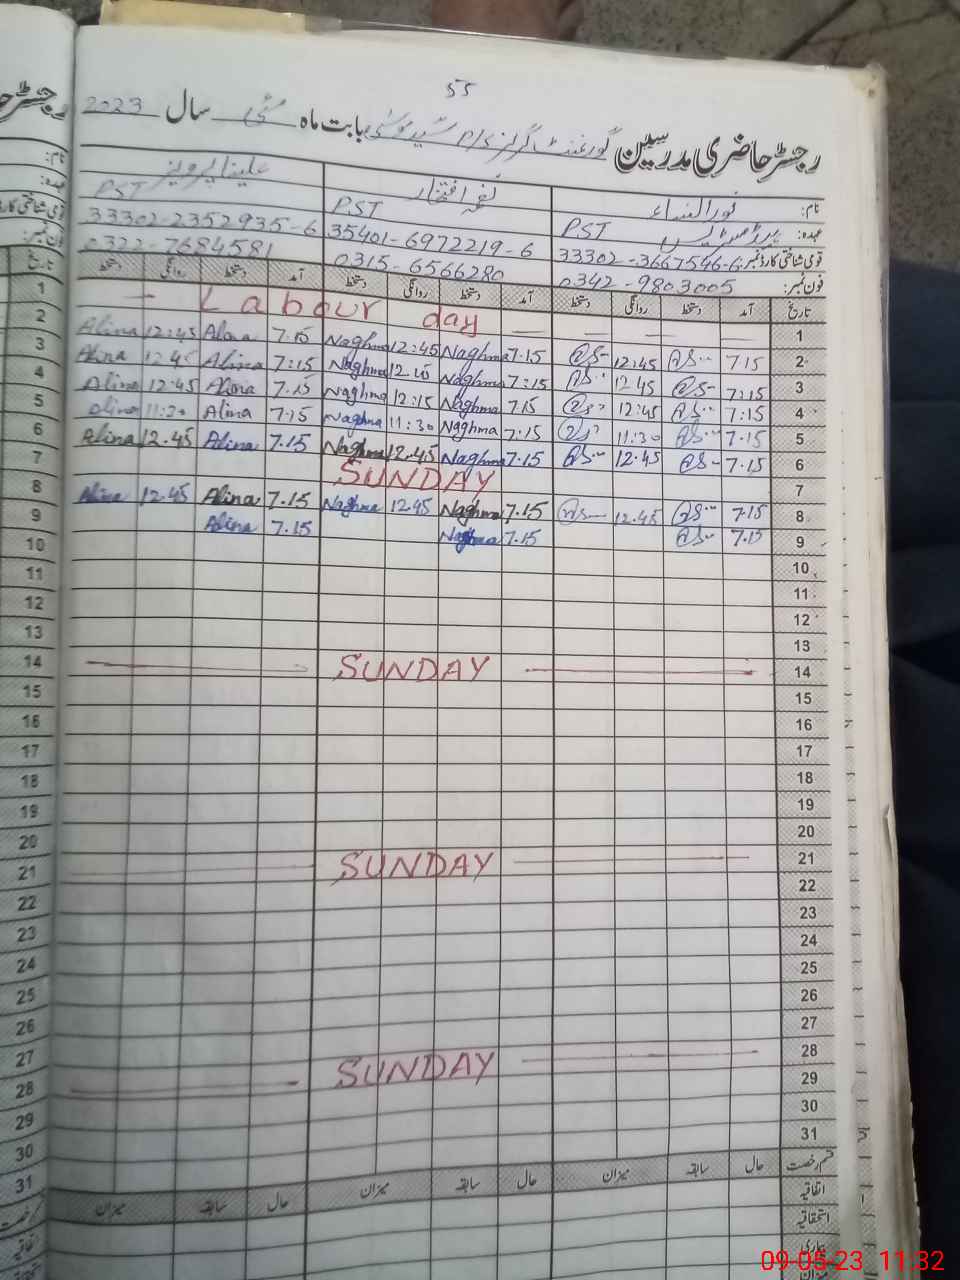 55
رجسٹر حاضری مدرسین گورنمنٹ گرلز P/S سید موسیٰ بابت ماہ مئی سال 2023
نام: نورالنساء نغمہ افتخار علینا پرویز
عہدہ: PST PST PST
قومی شناختی کارڈ نمبر: 33302-3667546-6 35401-6972219-6 33302-2352935-6
فون نمبر: 0342-9803005 0315-6566280 0322-7684581
تاریخ آمد دستخط روانگی دستخط آمد دستخط روانگی دستخط آمد دستخط روانگی دستخط تاریخ
1 Labour day 1
2 Alina 12:45 Alina 7.15 Naghma 12:45 Naghma 7.15 12:45 7.15 2
3 Alina 12.45 Alina 7:15 Naghma Naghma 7:15 12 45 7:15 3
4 Alina 12:45 Alina 7.15 Naghma 12:15 Naghma 7.15 12:45 7:15 4
5 Alina 11:30 Alina 7.15 Naghma 11:30 Naghma 7:15 11:30 7.15 5
6 Alina 12.45 Alina 7.15 Naghma 12.45 Naghma 7.15 12.45 7.15 6
7 SUNDAY 7
8 Alina 12.45 Alina 7.15 Naghma 12.45 Naghma 7.15 12.45 7.15 8
9 Alina 7.15 Naghma 7.15 7.15 9
10 10
11 11
12 12
13 13
14 SUNDAY 14
15 15
16 16
17 17
18 18
19 19
20 20
21 SUNDAY 21
22 22
23 23
24 24
25 25
26 26
27 27
28 SUNDAY 28
29 29
30 30
31 31
قسم رخصت حال سابقہ میزان حال سابقہ میزان حال سابقہ میزان
اتفاقیہ
استحقاقیہ
بیماری
میزان
09-05-23 11:32